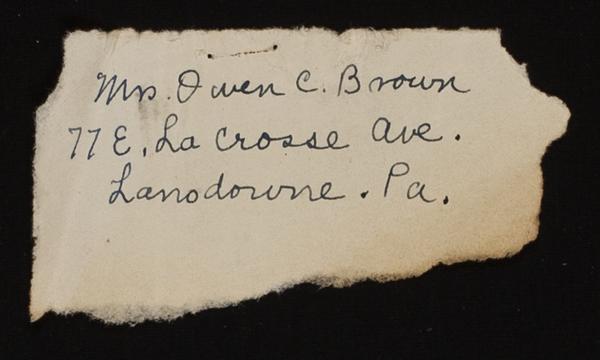 Mrs. Owen C. Brown
77 E. La Crosse Ave.
Lansdowne. Pa.